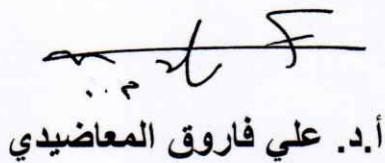 أ.د. علي فاروق المعاضيدي